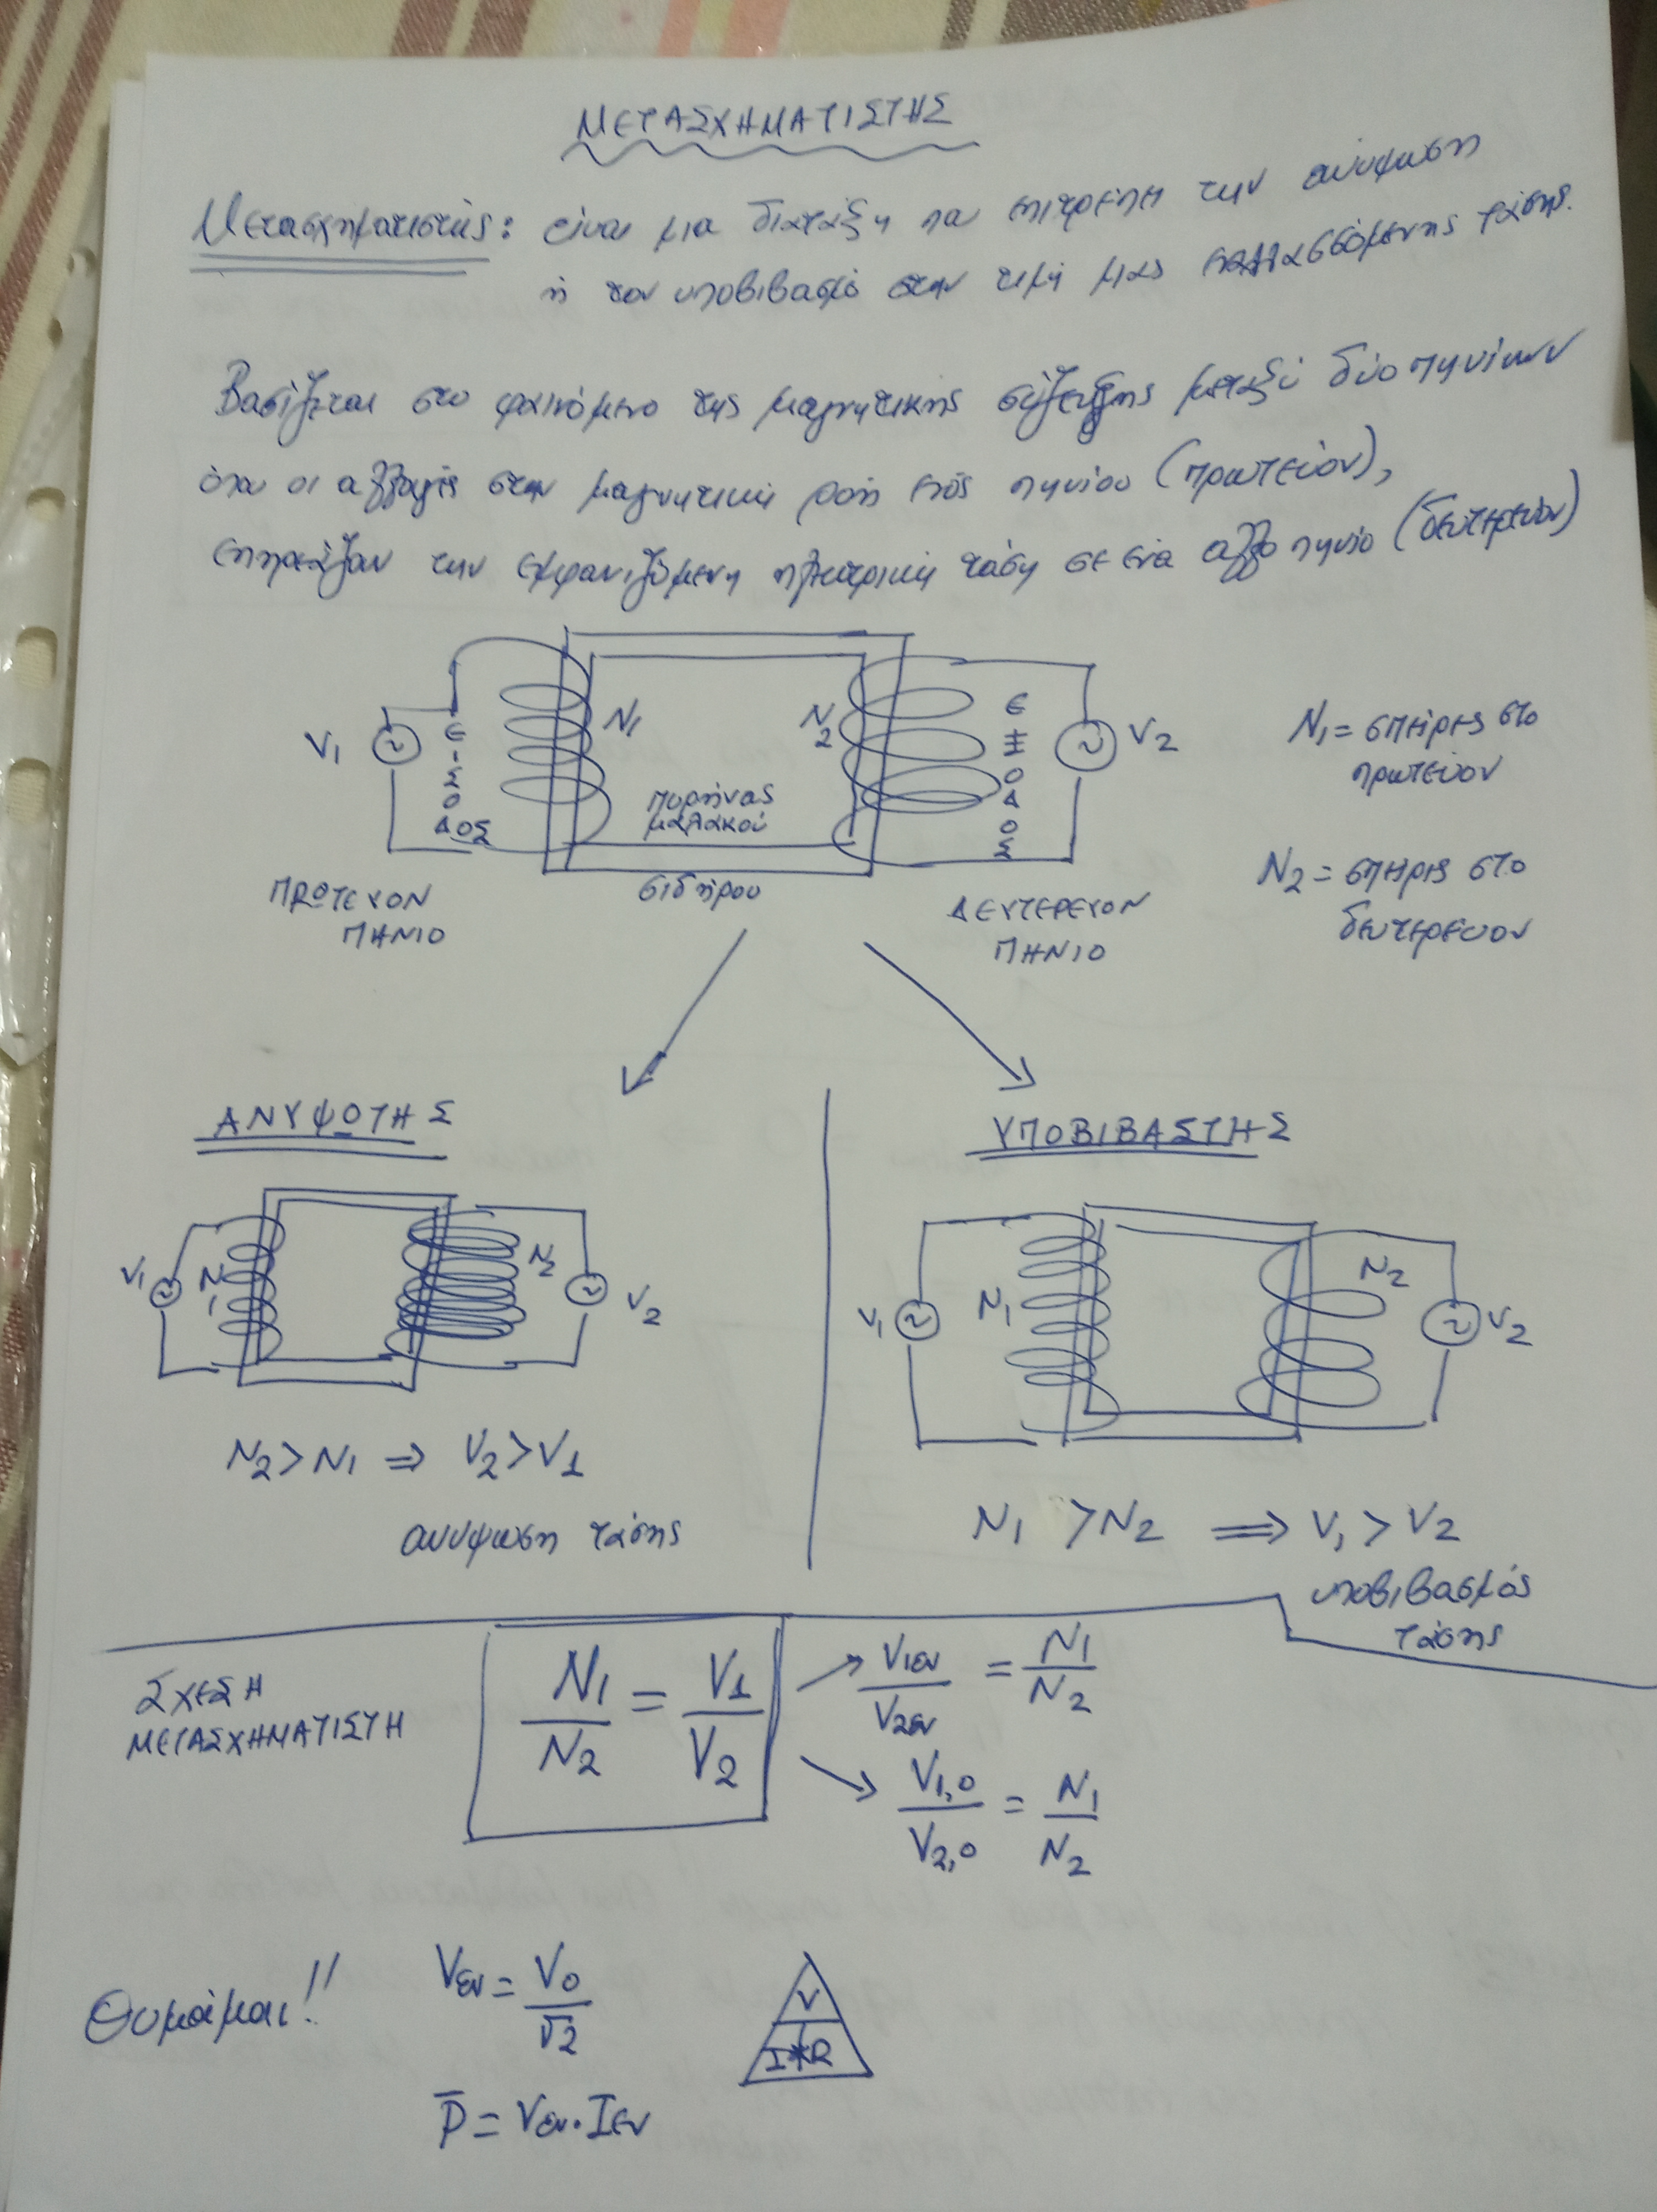 ΜΕΤΑΣΧΗΜΑΤΙΣΤΗΣ
Μετασχηματιστής: είναι μια διάταξη που επιτρέπει την ανύψωση
ή τον υποβιβασμό στην τιμή μιας εναλλασσόμενης τάσης.
Βασίζεται στο φαινόμενο της μαγνητικής σύζευξης μεταξύ δύο πηνίων
όπου οι αλλαγές στην μαγνητική ροή ενός πηνίου (πρωτεύον),
επηρεάζουν την εμφανιζόμενη ηλεκτρική τάση σε ένα άλλο πηνίο (δευτερεύον)
V1 ΕΙΣΟΔΟΣ N1 N2 ΕΞΟΔΟΣ V2
πυρήνας
μαλακού
σιδήρου
ΠΡΩΤΕΥΟΝ
ΠΗΝΙΟ
ΔΕΥΤΕΡΕΥΟΝ
ΠΗΝΙΟ
N1 = σπείρες στο
πρωτεύον
N2 = σπείρες στο
δευτερεύον
ΑΝΥΨΟΤΗΣ
V1 N1 N2 V2
N2 > N1 ⇒ V2 > V1
ανυψωση τάσης
ΥΠΟΒΙΒΑΣΤΗΣ
V1 N1 N2 V2
N1 > N2 ⟹ V1 > V2
υποβιβασμός
τάσης
ΣΧΕΣΗ
ΜΕΤΑΣΧΗΜΑΤΙΣΤΗ
N1/N2 = V1/V2
V1εν/V2εν = N1/N2
V1,0/V2,0 = N1/N2
Θυμάμαι!!
Vεν = V0/√2
V
I*R
P̅ = Vεν·Iεν